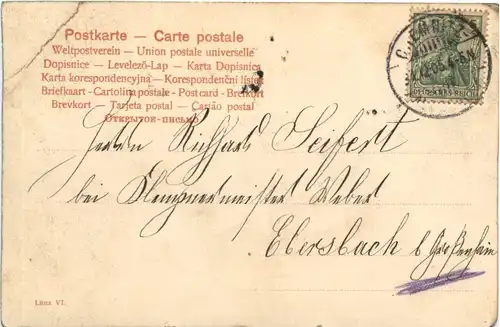 Postkarte – Carte postale
Weltpostverein – Union postale universelle
Dopisnice – Levelező-Lap – Karta Dopisnica
Karta korespondencyjna – Korespondenční lístek
Briefkaart - Cartolina postale - Post card - Brefkort
Brevkort – Tarjeta postal – Cartão postal
Открытое письмо
CHEMNITZ
DEUTSCHES REICH
Herrn Richard Seifert
bei Klempnermeister Weber
Ebersbach b. Großenhain
Luna VI.